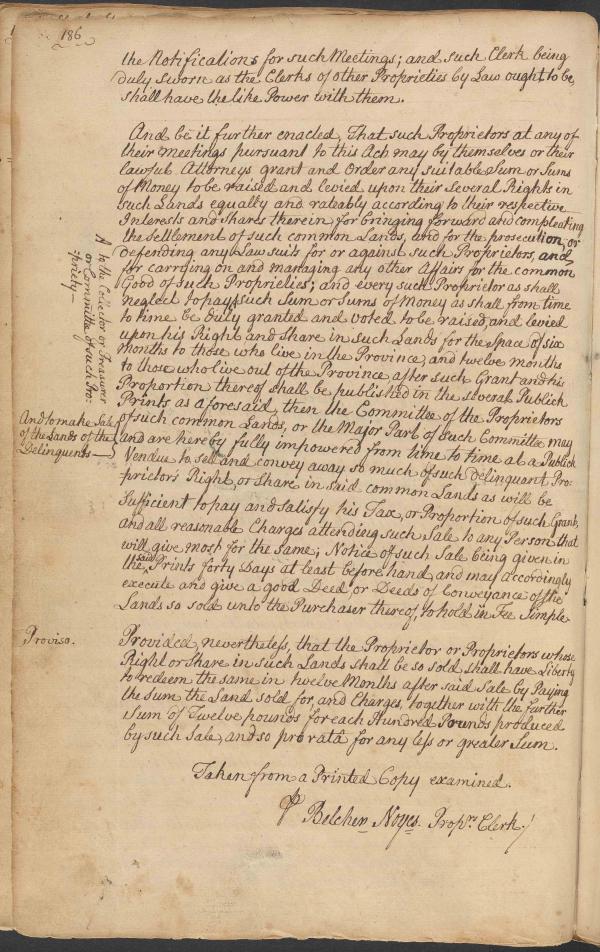 186
the Notifications for such Meetings; and such Clerk being
duly sworn as the Clerks of other Proprieties by Law ought to be,
shall have the like Power with them.
And be it further enacted, That such Proprietors at any of
their Meetings pursuant to this Act may by themselves or their
lawfull Attorneys grant and Order any suitable Sum or Sums
of Money to be raised and levied upon their Several Rights in
such Lands equally and rateably according to their respective
Interests and Shares therein, for bringing forward and compleating
the settlement of such common Lands, and for the prosecution, or
defending any Law suits for or against such Proprietors, and
for carrying on and managing any other Affairs for the common
Good of such Proprieties; and every such Proprietor as shall
neglect to pay ^ such Sum or Sums of Money as shall from time
to time be duly granted and voted to be raised, and levied
upon his Right and Share in such Lands for the Space of six
Months to those who live in the Province, and twelve months
to those who live out of the Province after such Grant and his
Proportion thereof shall be published in the several Publick
Prints as aforesaid, then the Committee of the Proprietors
of such common Lands, or the Major Part of such Committee may
and are hereby fully impowered from time to time at a Publick
Vendue to sell and convey away so much of such delinquant Pro-
prietor's Right, or Share in said common Lands as will be
Sufficient to pay and satisfy his Tax, or Proportion of such Grant,
and all reasonable Charges attending such Sale to any Person that
will give most for the same; Notice of such Sale being given in
the said Prints forty Days at least before hand, and may accordingly
execute and give a good Deed, or Deeds of Conveyance of the
Lands so sold unto the Purchaser thereof, to hold in Fee Simple
^ to the Collector or Treasurer
or Committee of such Pro:
:priety—
And to make Sale
of the Lands of the
Delinquents—
Proviso.
Provided, nevertheless, that the Proprietor or Proprietors whose
Right or Share in such Lands shall be so sold shall have Liberty
to redeem the same in twelve Months after said Sale by Paying
the sum the Land sold for, and Charges, together with the further
Sum of Twelve pounds for each Hundred Pounds produced
by such Sale, and so pro ratâ for any less or greater Sum.
Taken from a Printed Copy examined.
⅌ Belcher Noyes. Propr. Clerk